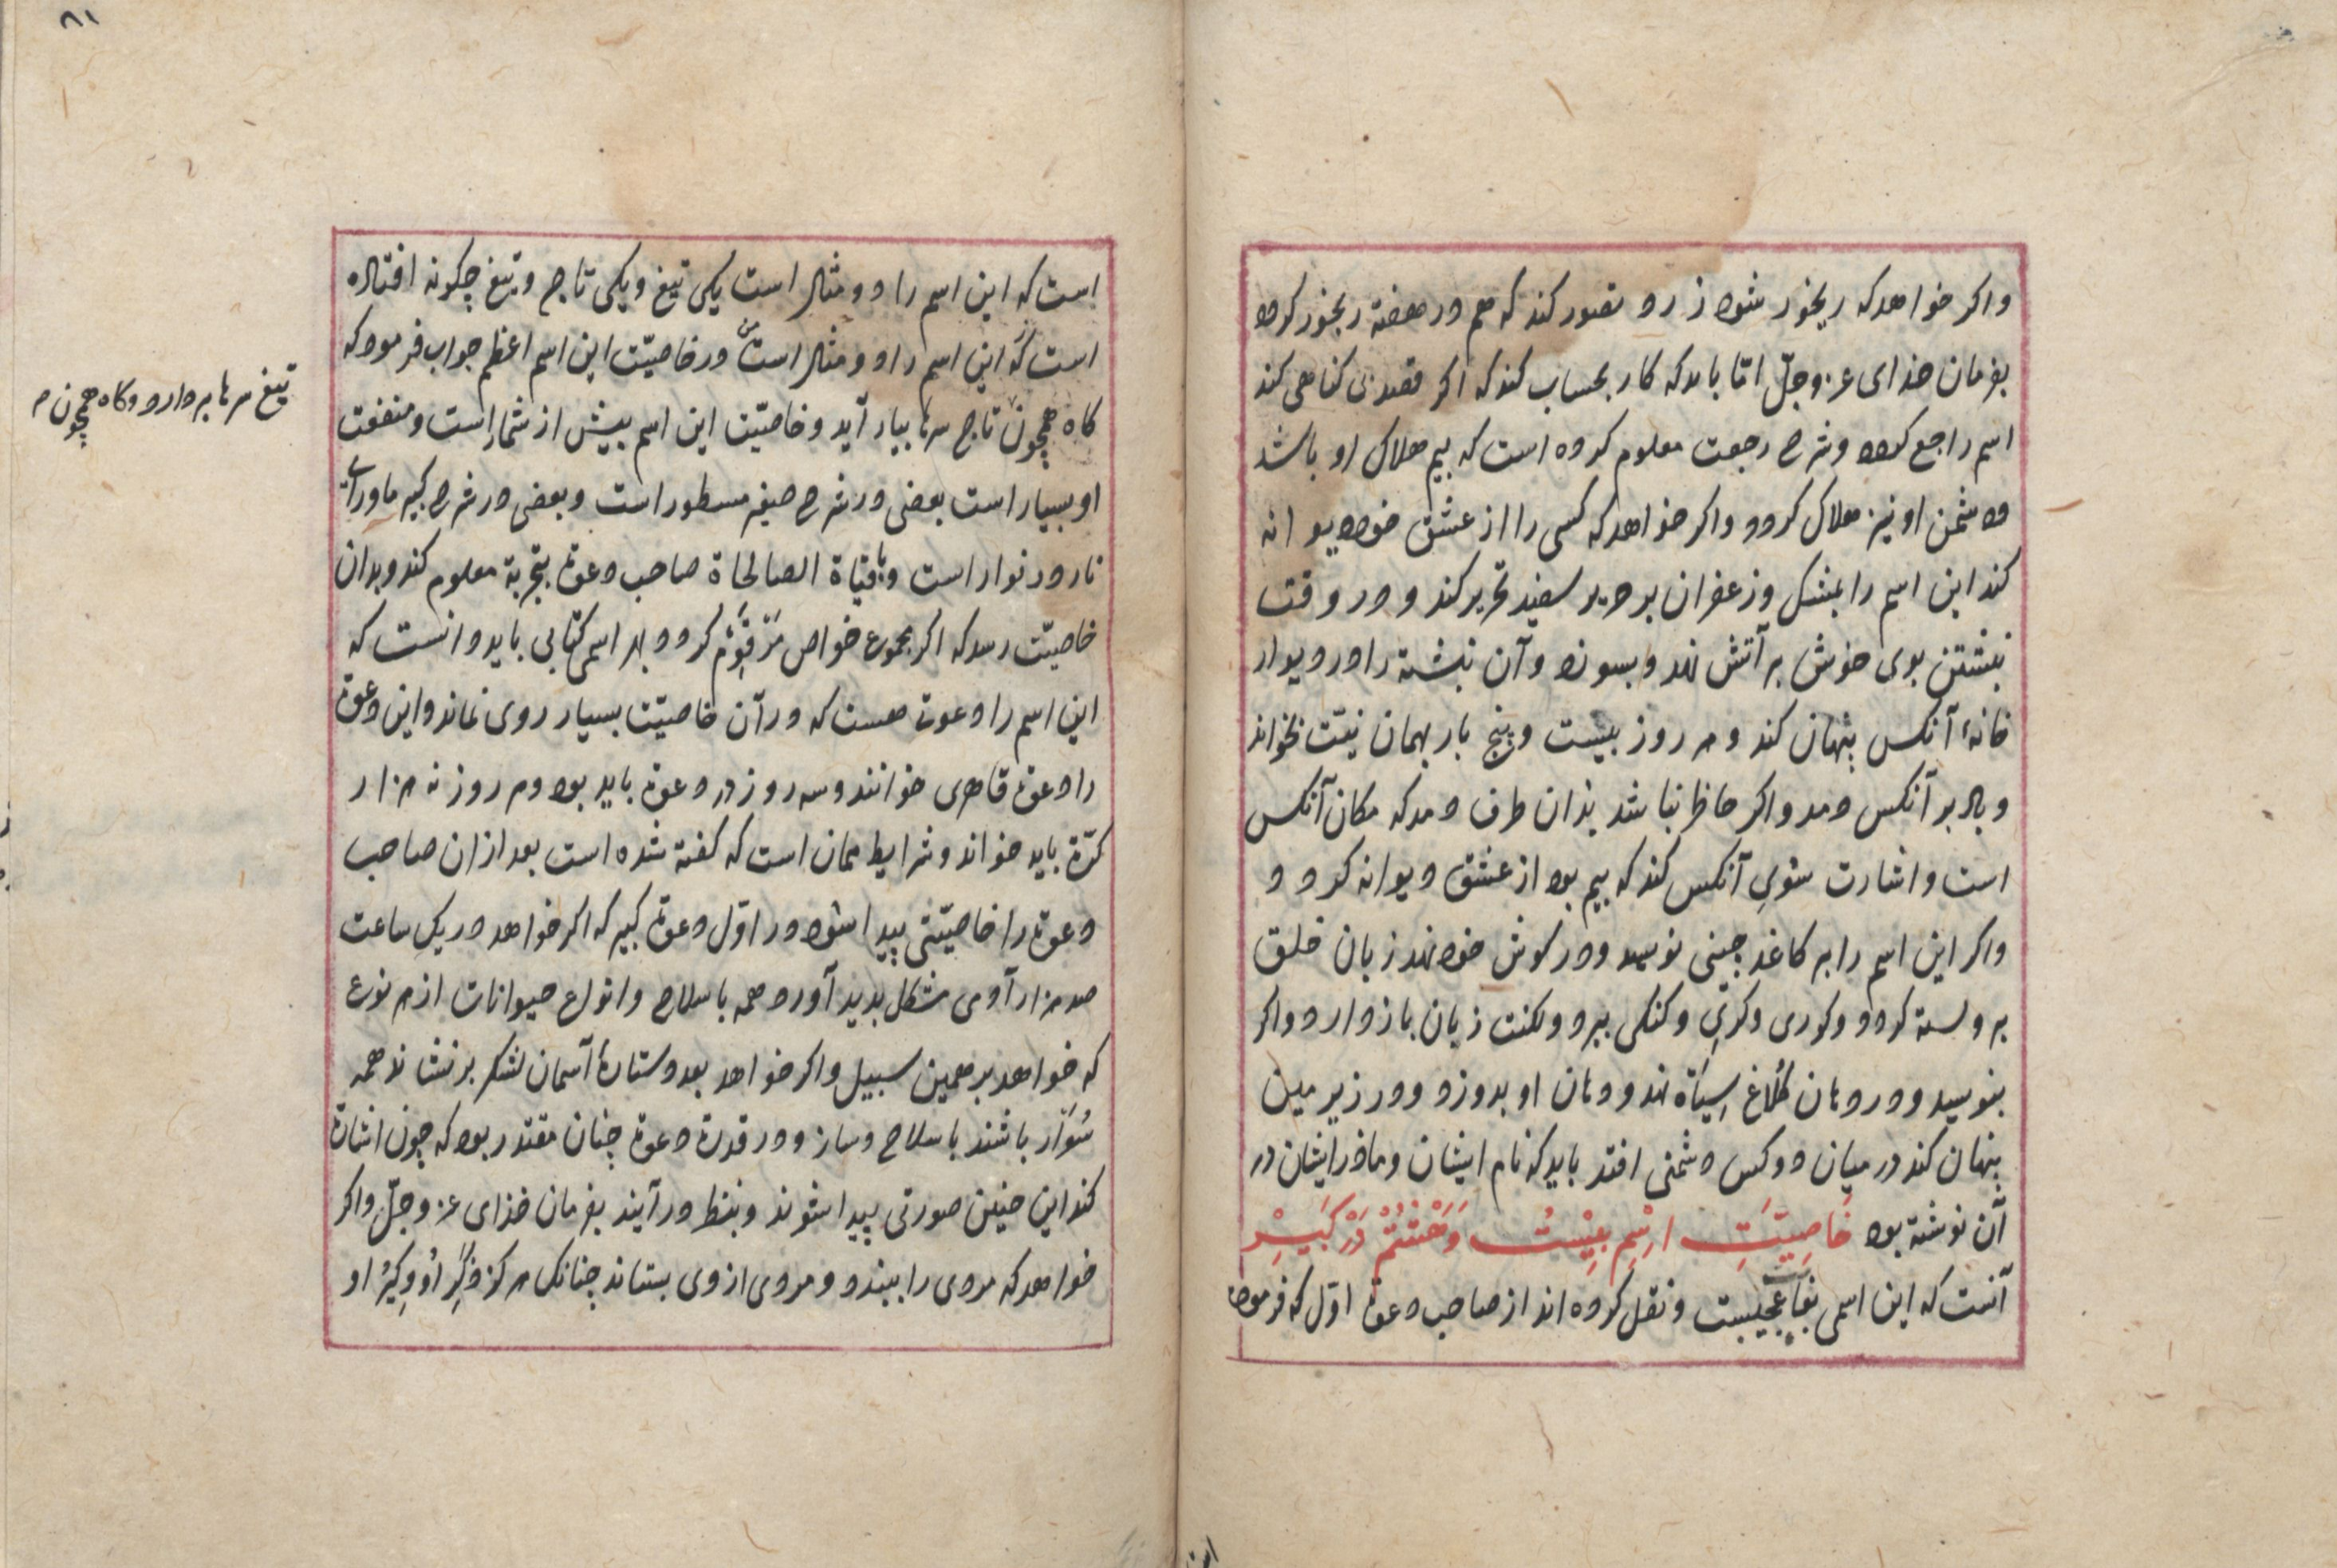 واکر خواهدکه ریخور شود زرد تصور کند که هم در هفته ریخور کردد
بفرمان خذای عزوجلّ امّا بایدکه کار بحساب کند که اکر قصد بی کناهی کند
اسم راجع کردد وشرح رجعت معلوم کرده است که بیم هلاک او باشد
دشمن اونیز هلاک کردد واکر خواهدکه کسی را از عشق خود دیوانه
کند این اسم را بمشک وزعفران بر حریر سفید تحریر کند ودر وقت
نبشتن بوی خوش بر آتش نهد وبسوزد وآن نبشته را در دیوار
خانهٔ آنکس پنهان کند وهر روز بیست وپنج بار بهمان نیّت بخواند
وباد بر آنکس دمد واکر حاظر نباشد بذان طرف دمدکه مکان آنکس
است واشارت سوی آنکس کند که بیم بود از عشق دیوانه کردد
واکر این اسم را بر کاغد چینی نویسد ودر کوش خود نهد زبان خلق
بر وبسته کردد وکوری وکری وکنکی ببرد ولکنت زبان بازدارد واکر
بنویسد ودر دهان کلاغ سیاه نهد ودهان او بدوزد ودر زیر زمین
پنهان کند در میان دوکس دشمنی افتد باید که نام ایشان وماذر ایشان در
آن نوشته بود خَاصِیَّتِ اِسْمِ بِیْسْتُ وَهَشْتُمْ دَرْ کَبِیرْ
آنست که این اسمی بغایت عجیبست ونقل کرده اند از صاحب دعوة اوّل که فرموده
۸۱
است که این اسم را دو مثال است یکی تیغ ویکی تاج وتیغ چکونه افتاده
است که این اسم را دو مثال است در خاصیّت این اسم اعظم جواب فرمود که
کاه همچون تاج سرها بیاراید وخاصیّت این اسم بیش از شمار است ومنفعت
او بسیار است بعضی در شرح صغیر مسطور است وبعضی در شرح کبیر ماورای
نار ودر نوار است وباقیاة الصالحاة صاحب دعوة بتجربة معلوم کند وبدان
خاصیّت رسدکه اکر مجموع خواص مرقوم کردد بهر اسمی کتابی باید دانست که
این اسم را دعوت هست که در آن خاصیّت بسیار روی نماند واین دعوة
را دعوة قاهری خوانند وسه روز در دعوة باید بود وهر روز نه هزار
کرّة باید خواند وشرایط همان است که کفته شده است بعد از ان صاحب
دعوة را خاصیّتی پیدا شود در اوّل دعوة کبیر که اکر خواهد در یک ساعت
صد هزار آدمی بشکل بدید آورد همه با سلاح وانواع حیوانات از هر نوع
که خواهد بر همین سبیل واکر خواهد بعدد ستارهٔ آسمان لشکر برنشاند همه
سوار باشند با سلاح وساز ودر قدرة دعوة چنان مقتدر بود که چون اشارة
کند این چنین صورتی پیدا شوند وبنظر در آیند بفرمان خذای عزوجلّ واکر
خواهد که مردی را ببندد ومردی از وی بستاند چنانک هرکز ذکر او دیکر او
تیغ سرها بردارد وکاه همچون م